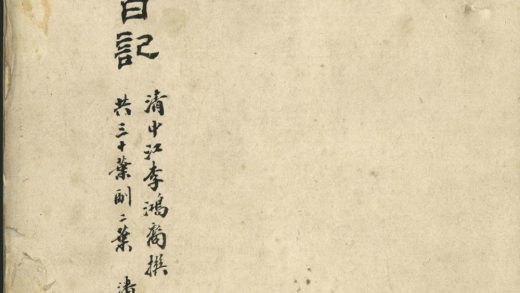 日記
清中江李鴻裔撰
共三十葉刪二葉